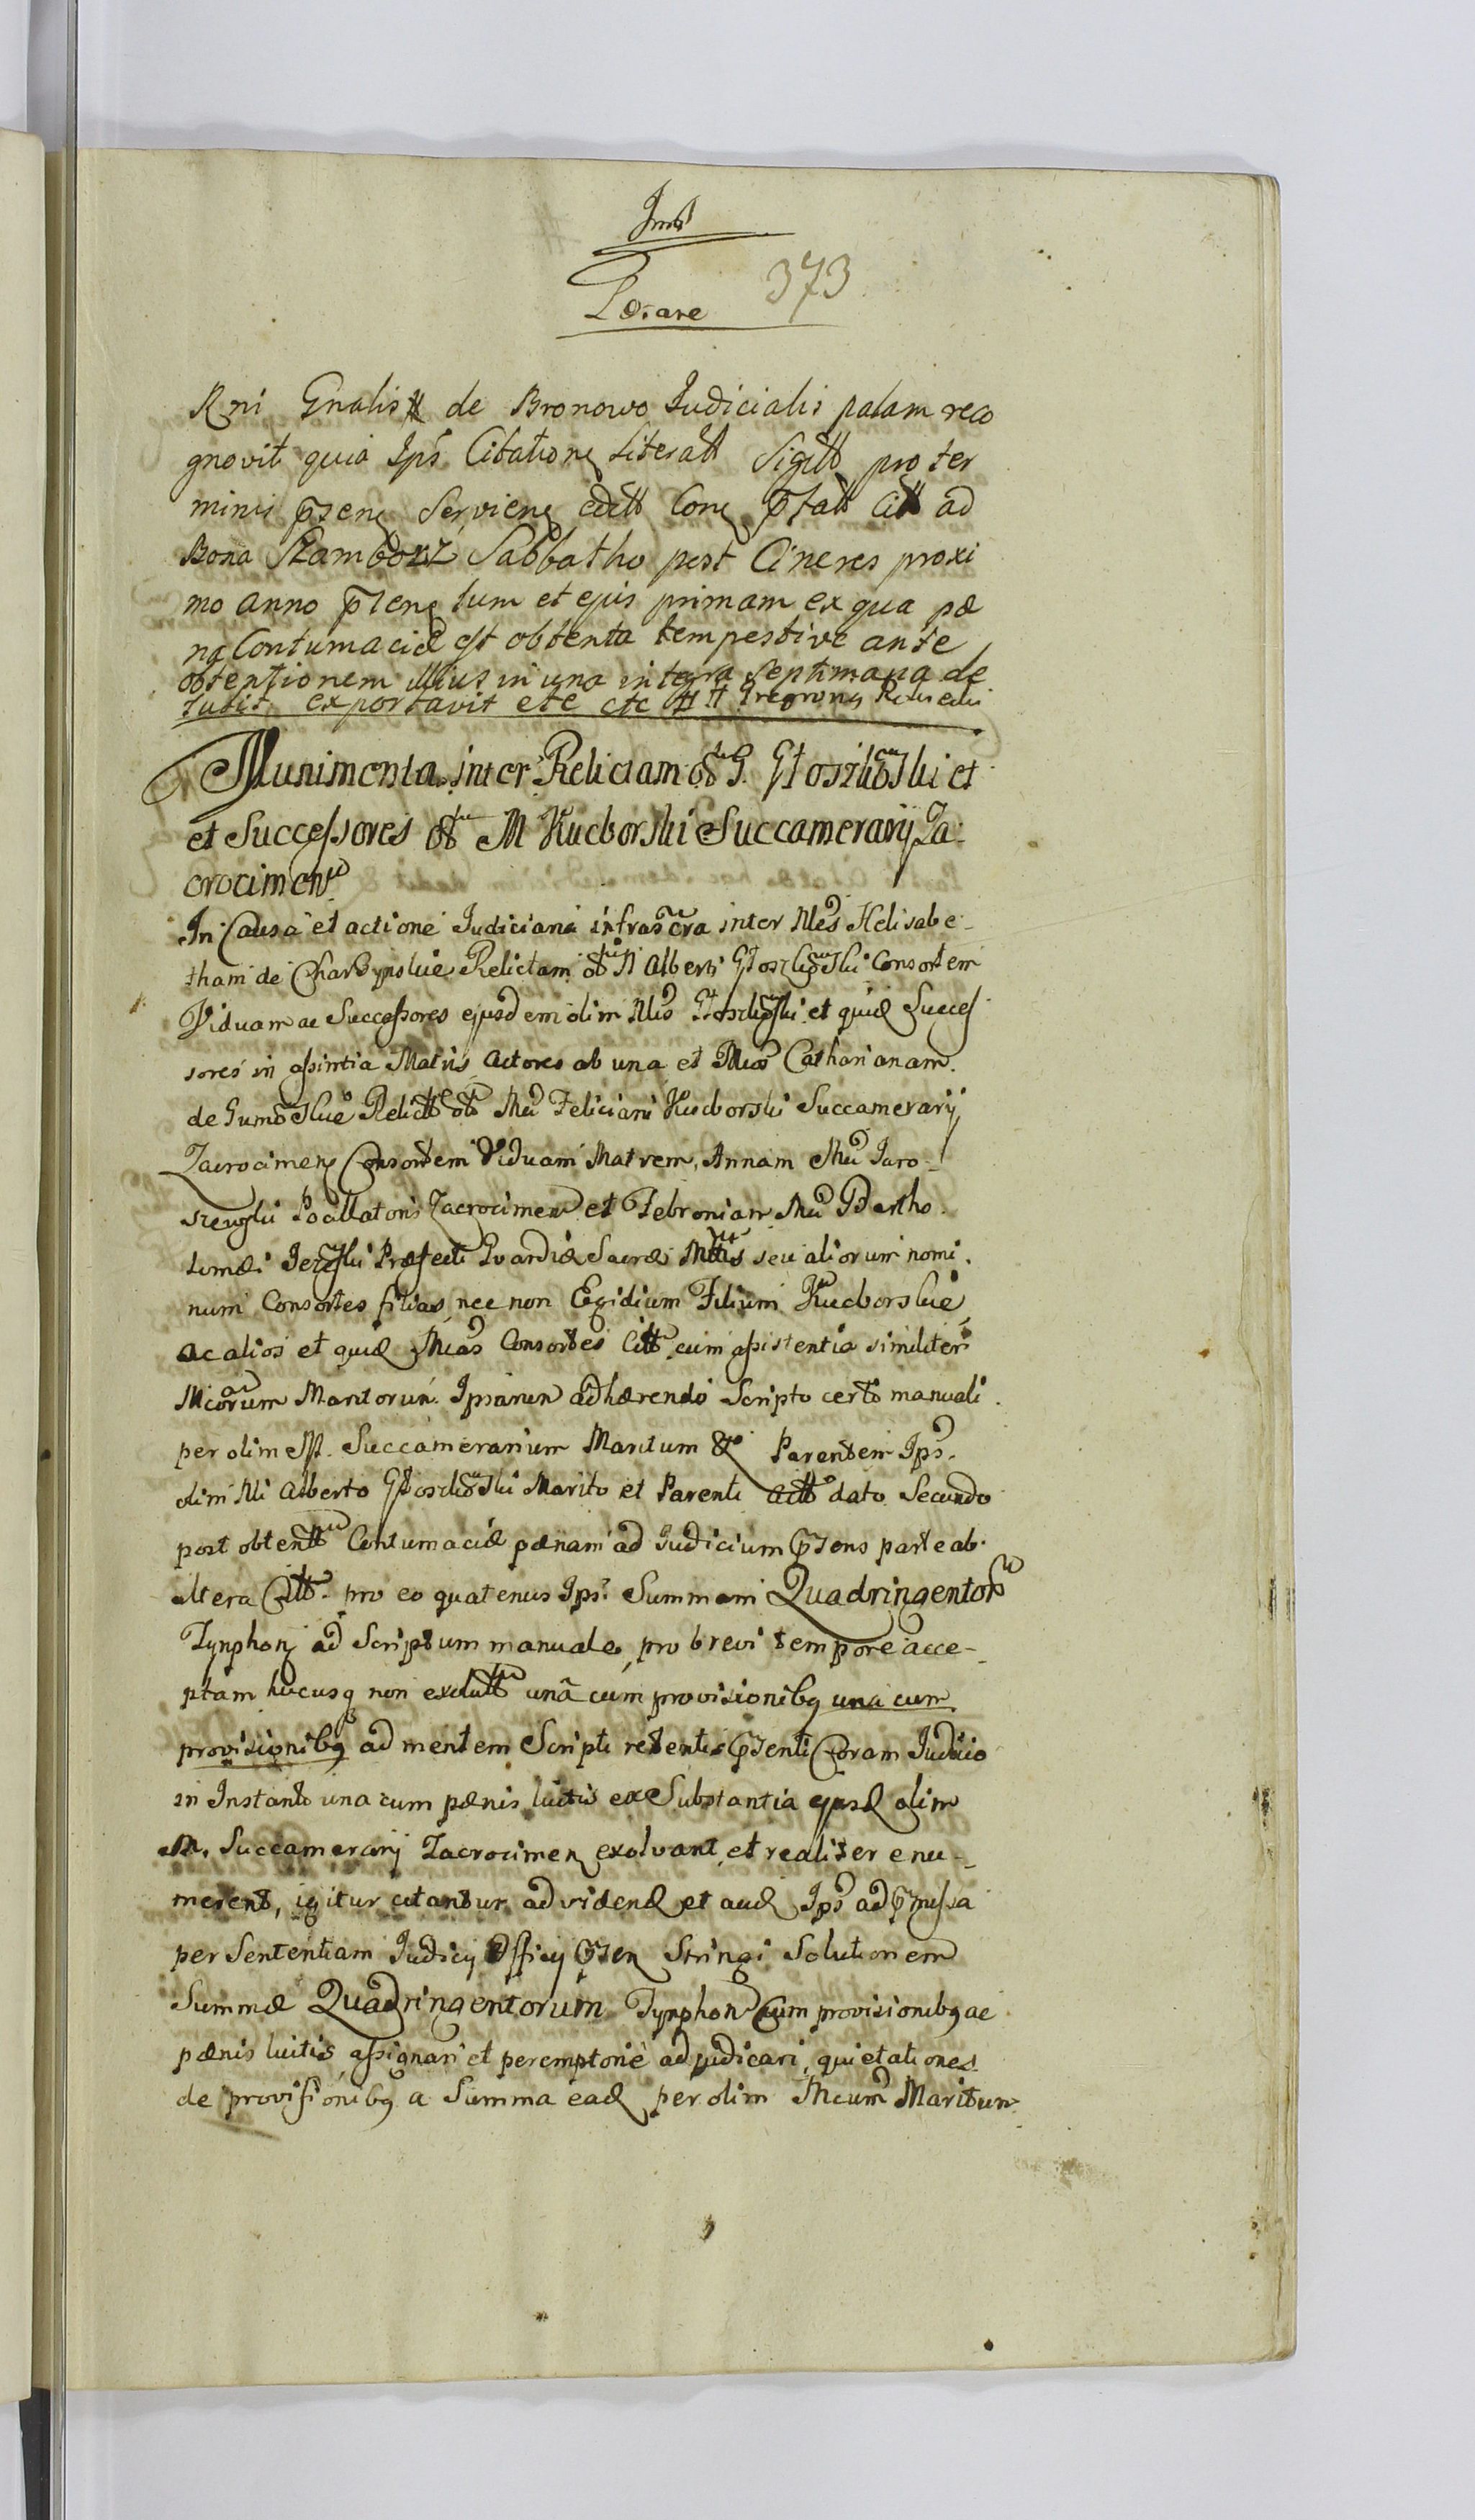 373
Rni Gnalis de Bronowo Judicialis palam reco
gnovit quia Ips Citationẽ literatt Sigitt pro ter
minis p̄senẽ Servienẽ editt Conẽ p̄fatt Citt ad
Bona Szamborz Sabbatho post Cineres proxi
mo anno p̄senẽ tum et ejus primam ex qua pæ
na Contumaciæ est obtenta tempestive ante
obtentionem illius in una integra septimana de
exportavit etc etc
Munimenta inter Relictam G. et
et Successores M Kucborski Succamerarij Za
crocimen
In Causa et actione Judiciaria infrascra inter Mes Helisabe
tham de Relictam M Alberti Consortem
Viduam ac Successores ejusdem olim Mis et quid Succes
sores in assintia Matris actores ab una et Mcas Catharianam
de Relictt Mci Feliciani Kucborski Succamerarij
Zacrocimen Consortem Viduam Matrem, Annam Mci Jaro
szewski Pocillatoris Zacrocimen et Febroniam Mci Bartho
lomæi Præfecti Gvardiæ Sacræ Mttis seu aliorum nomi
num Consortes filias nec non Egidium Filium Kucborskie
ac alios et quid Mcas Consortes Citt cum assistentia similiter
Mcorum Maritorum Ipsarum adhærendo Scripto certo manuali
per olim M. Succamerarium Maritum et Parentem Ips
olim Mi Alberto Marito et Parenti Actt dato Secundo
post obtentt Contumaciæ pænam ad Judicium p̄sens parte ab
altera Citt pro eo quatenus Ips. Summam Quadringentor
Tynphonẽ ad Scriptum manuale, pro brevi tempore acce
ptam hucusq non exolutt unâ cum provisionibq una cum
provisionibq ad mentem Scripti retentis p̄senti Coram Judicio
in Instanti una cum pænis luitis ex Substantia ejusd olim
M. Succamerarij Zacrocimen exolvant, et realiter enu
merent, igitur citantur ad vidend et aud Ips ad p̄missa
per Sententiam Judicij Officij p̄sen Stringi Solutionem
Summæ Quadringentorum Tynphon Cum provisionibq ac
pænis luitis assignari et peremptorie adjudicari, quietationes
de provisionibq a Summa ead per olim Mcum Maritum